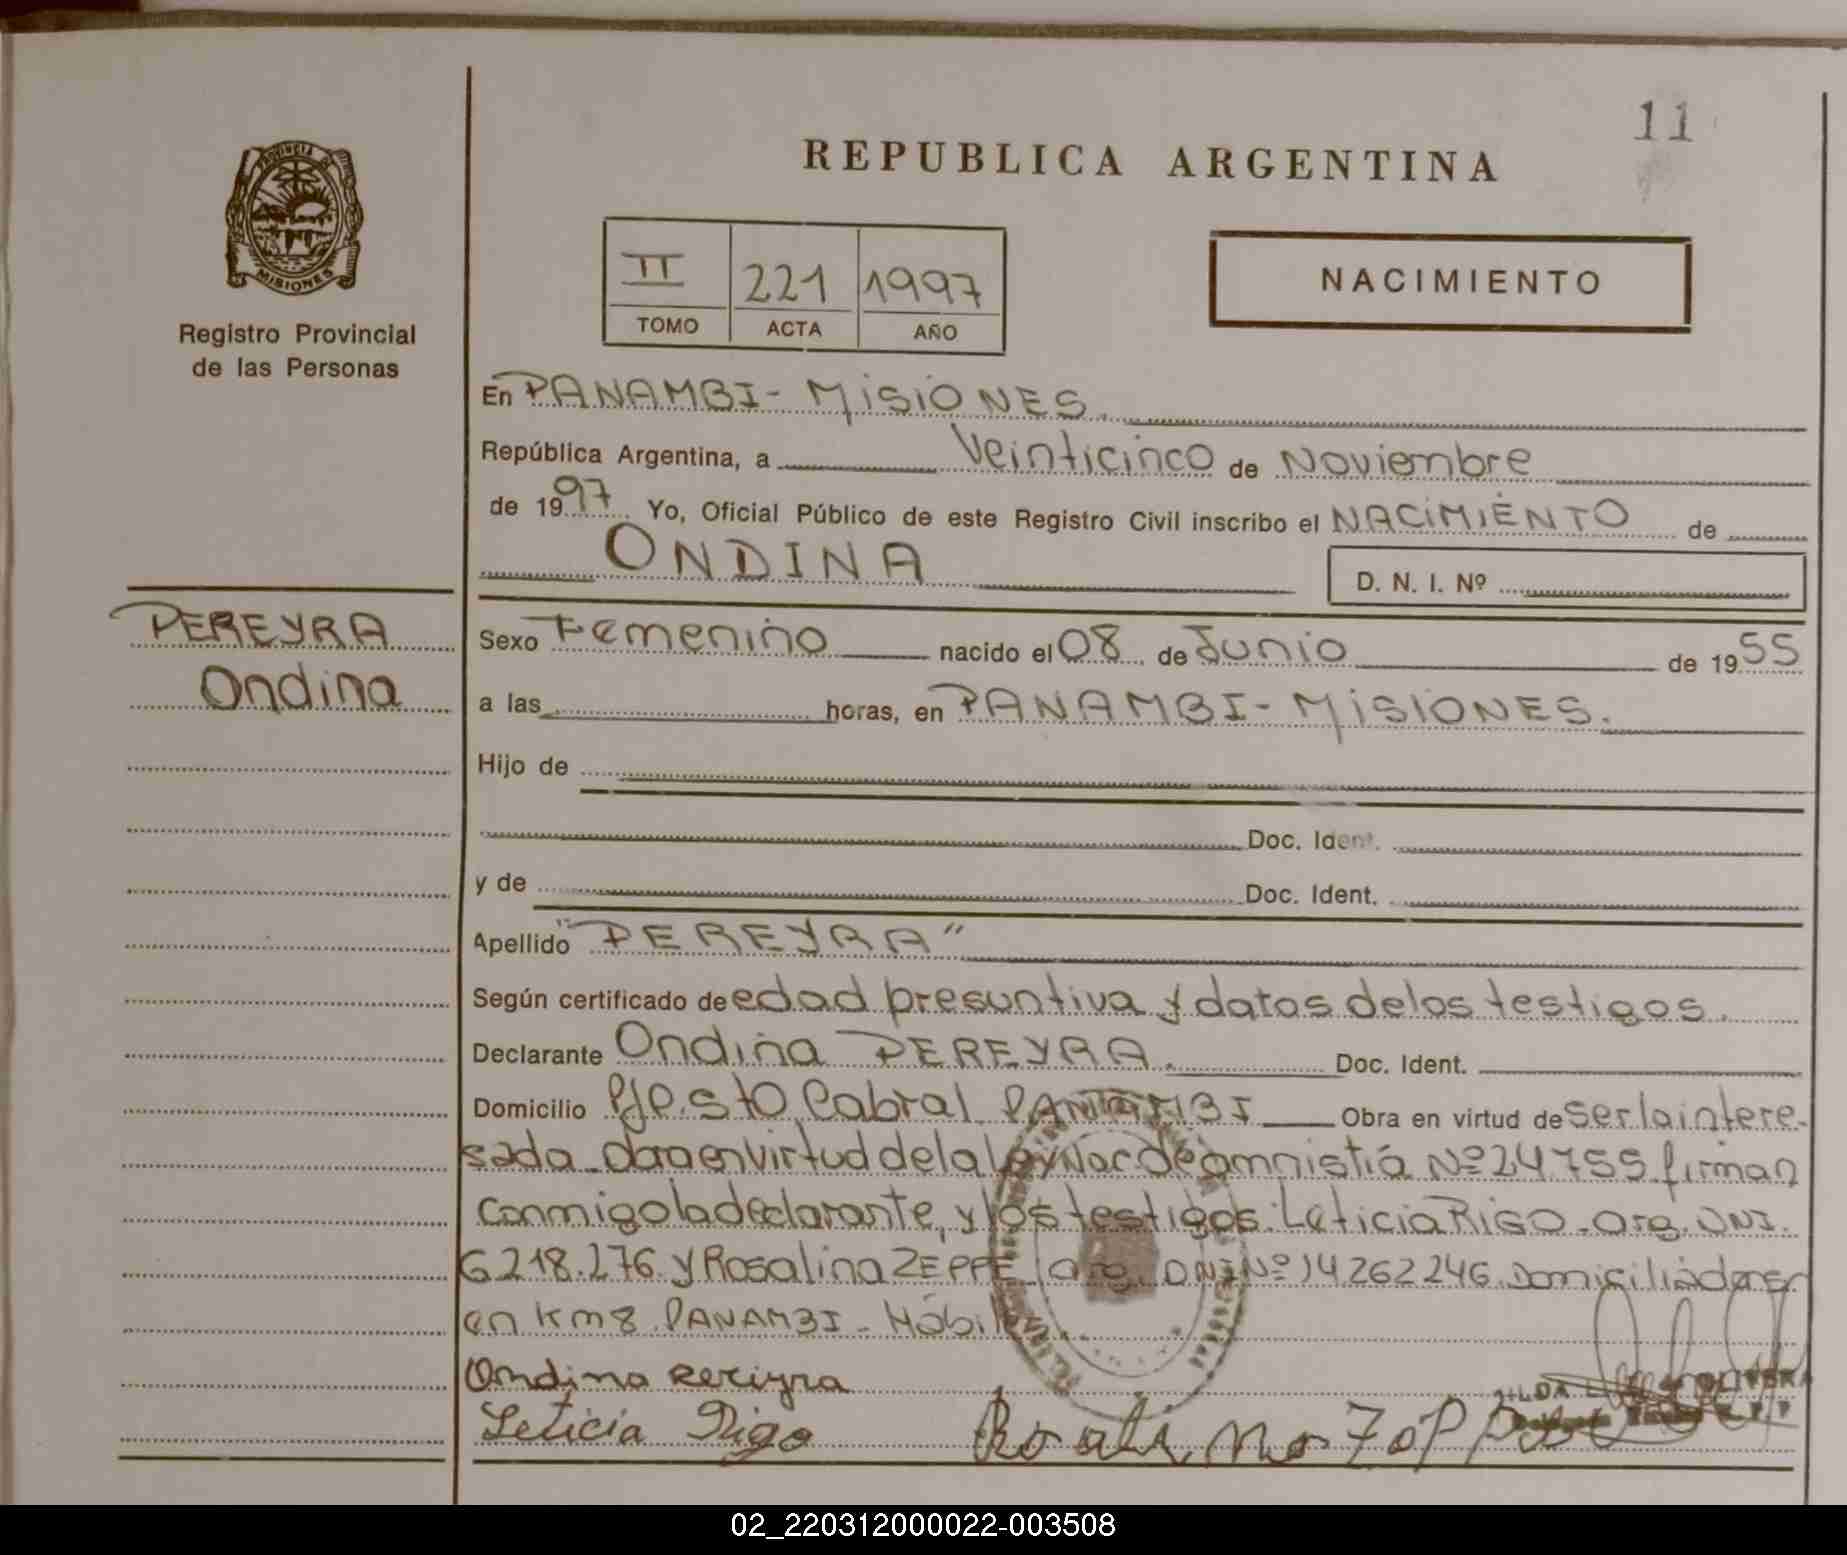 11
REPUBLICA ARGENTINA
PROVINCIA DE
MISIONES
Registro Provincial
de las Personas
II 221 1997
TOMO ACTA AÑO
NACIMIENTO
En PANAMBI - MISIONES.
República Argentina, a Veinticinco de Noviembre
de 1997 Yo, Oficial Público de este Registro Civil inscribo el NACIMIENTO de
ONDINA
D. N. I. Nº
PEREYRA
Ondina
Sexo Femenino nacido el 08 de Junio de 1955
a las horas, en PANAMBI - MISIONES.
Hijo de
Doc. Ident.
y de Doc. Ident.
Apellido "PEREYRA"
Según certificado de edad presuntiva y datos de los testigos.
Declarante Ondina PEREYRA. Doc. Ident.
Domicilio Pje. Sto Cabral PANAMBI Obra en virtud de ser la intere-
sada. Obra en virtud de la Ley Nac de amnistia Nº 24755 firman
conmigo la declarante, y los testigos: Leticia RIGO. Arg. DNI.
6218.276 y Rosalina ZEPPE Arg. DNI Nº 14262246 Domiciliadas
en Km 8 PANAMBI - Hábiles
Ondina Pereyra
Leticia Rigo
02_220312000022-003508